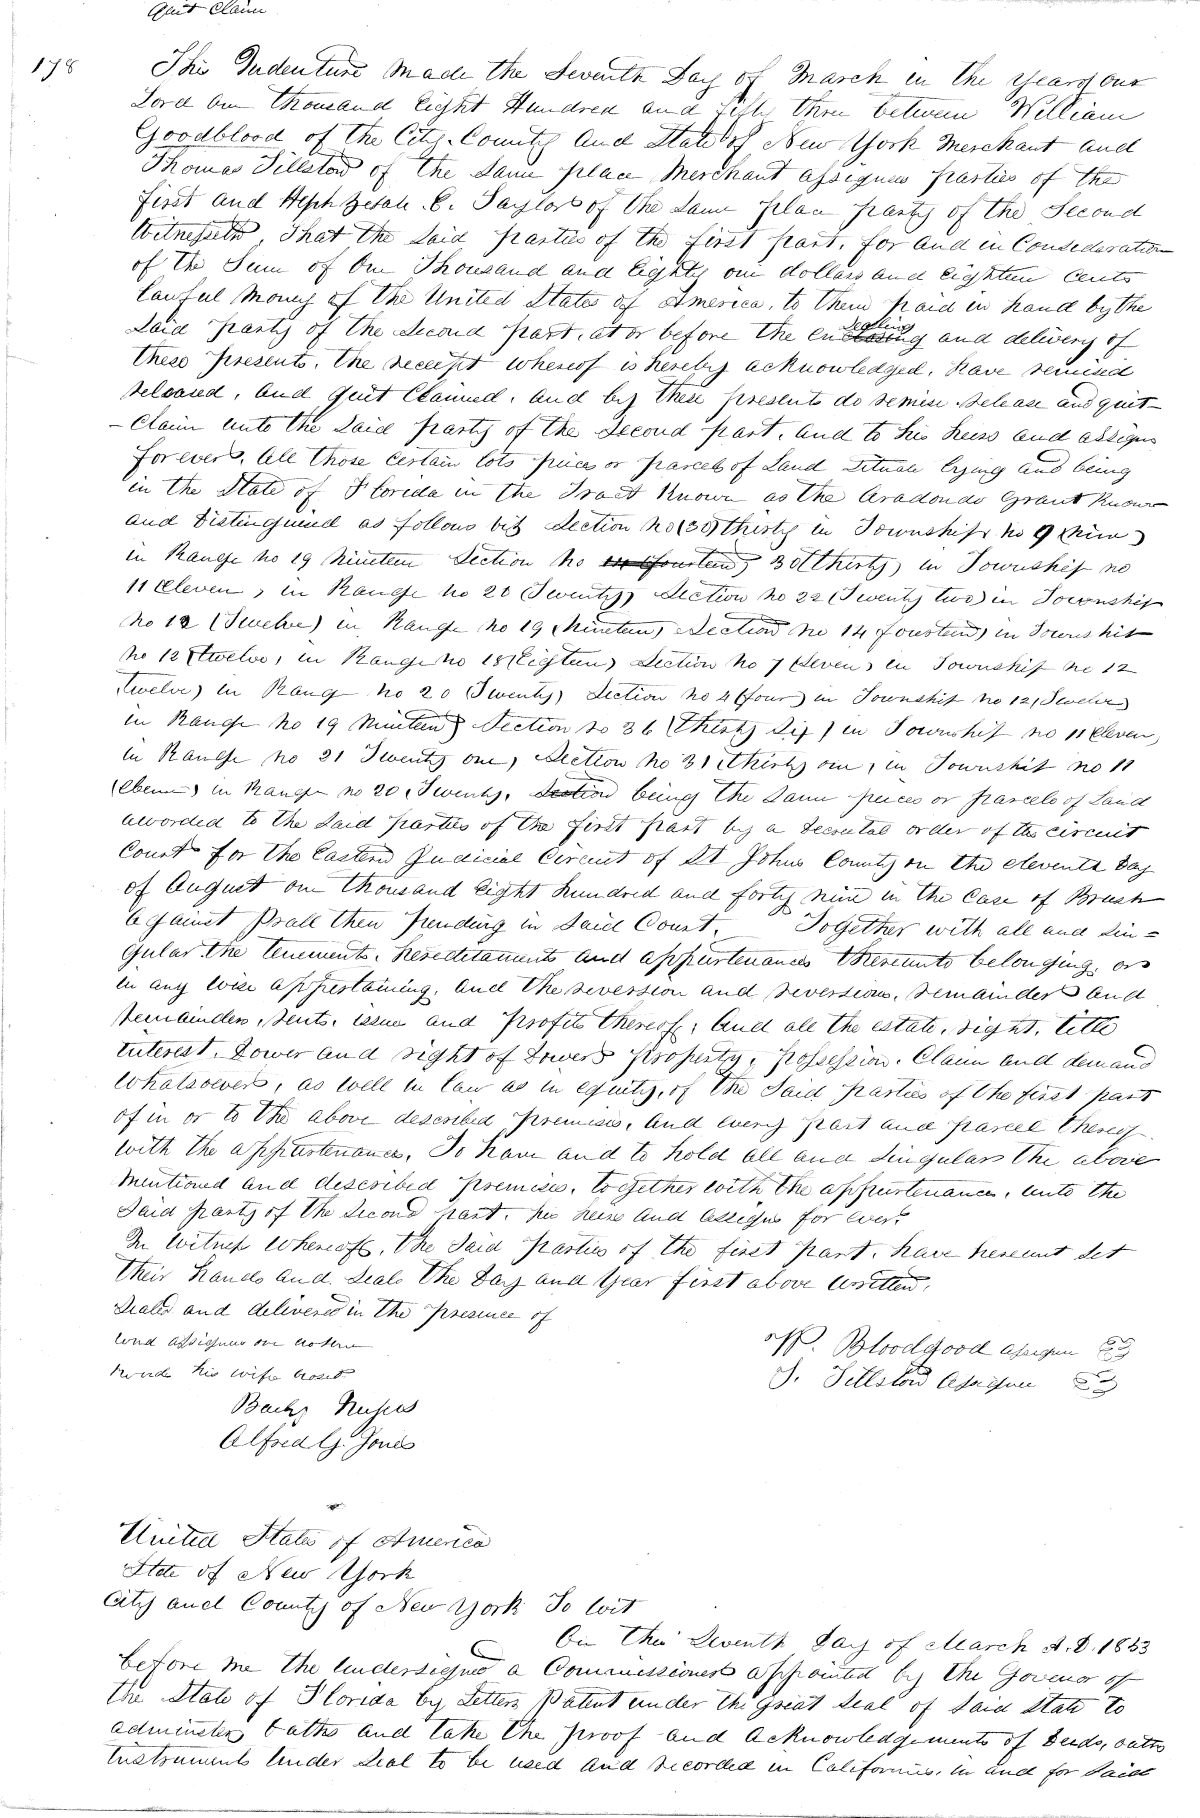 Quit Claim
178 This Indenture made the Seventh Day of March in the year of our
Lord one thousand Eight Hundred and fifty three between William
Goodblood of the City, County and State of New York Merchant and
Thomas Tillston of the Same place Merchant assignees parties of the
first and Hephzebah C. Taylor of the Same place party of the Second
Witnesseth, That the Said parties of the first part, for and in Consederation
of the Sum of One Thousand and Eighty one dollars and Eighteen Cents
lawful Money of the United States of America, to them paid in hand by the
Said party of the Second part, at or before the enclosing sealing and delivery of
these presents, the receipt whereof is hereby acknowledged, have remised
released, and quit Claimed, and by these presents do remise release and quit-
-Claim unto the Said party of the Second part, and to his heirs and assigns
forever, all those Certain lots pieces or parcels of Land Situate lying and being
in the State of Florida in the Tract Known as the Aradondo Grant Known
and Distinguised as follows viz Section no (30) thirty in Township no 9 (Nine)
in Range no 19 Nineteen Section no 14 (fourteen) 30 (thirty) in Township no
11 Eleven, in Range no 20 (Twenty) Section no 22 (Twenty two) in Township
no 12 (Twelve) in Range no 19 (Nineteen) Section no 14 fourteen) in Township
no 12 (twelve, in Range no 18 (Eigteen) Section no 7 (Seven) in Township no 12
Twelve) in Range no 20 (Twenty) Section no 4 (four) in Township no 12 (Twelve)
in Range no 19 Nineteen) Section no 36 (Thirty Six) in Township no 11 Eleven,
in Range no 21 Twenty one, Section no 31 (thirty one, in Township no 11
(Eleven) in Range no 20, Twenty, Section being the Same pieces or parcels of Land
aworded to the Said parties of the first part by a decretal order of the circuit
Court for the Eastern Judicial Circuit of St Johns County on the eleventh Day
of August one thousand Eight hundred and forty nine in the Case of Brush
against Prall then pending in Said Court. Together with all and Sin=
gular the tenements, hereditaments and appurtenances thereunto belonging, or
in any wise appertaining, and the reversion and reversions, remainder and
remainders, rents, issues and profits thereof; And all the estate, right, title
interest, Dower and right of Dower property, possession, Claim and demand
Whatsoever, as well in law as in equity, of the Said parties of the first part
of in or to the above described premises, and every part and parcel thereof
with the appurtenances, To have and to hold all and Singular the above
mentioned and described premises, together with the appurtenances, unto the
Said party of the Second part, his heirs and assigns for ever.
In Witness Whereof, the Said parties of the first part, have hereunt Set
their hands and Seals the Day and Year first above written,
Seald and delivered in the presence of
his wife
W. Bloodgood assignee
T. Tillston Assignee
Alfred G. Jones
United States of America
State of New York
City and County of New York To wit
On this Seventh Day of March A.D. 1853
before me the Undersigned a Commissioner appointed by the Govenor of
the State of Florida by Letters Patent under the great Seal of Said State to
adminster oaths and take the proof and acknowledgements of Deeds, oaths
Instruments Under Seal to be used and recorded in California, in and for Said